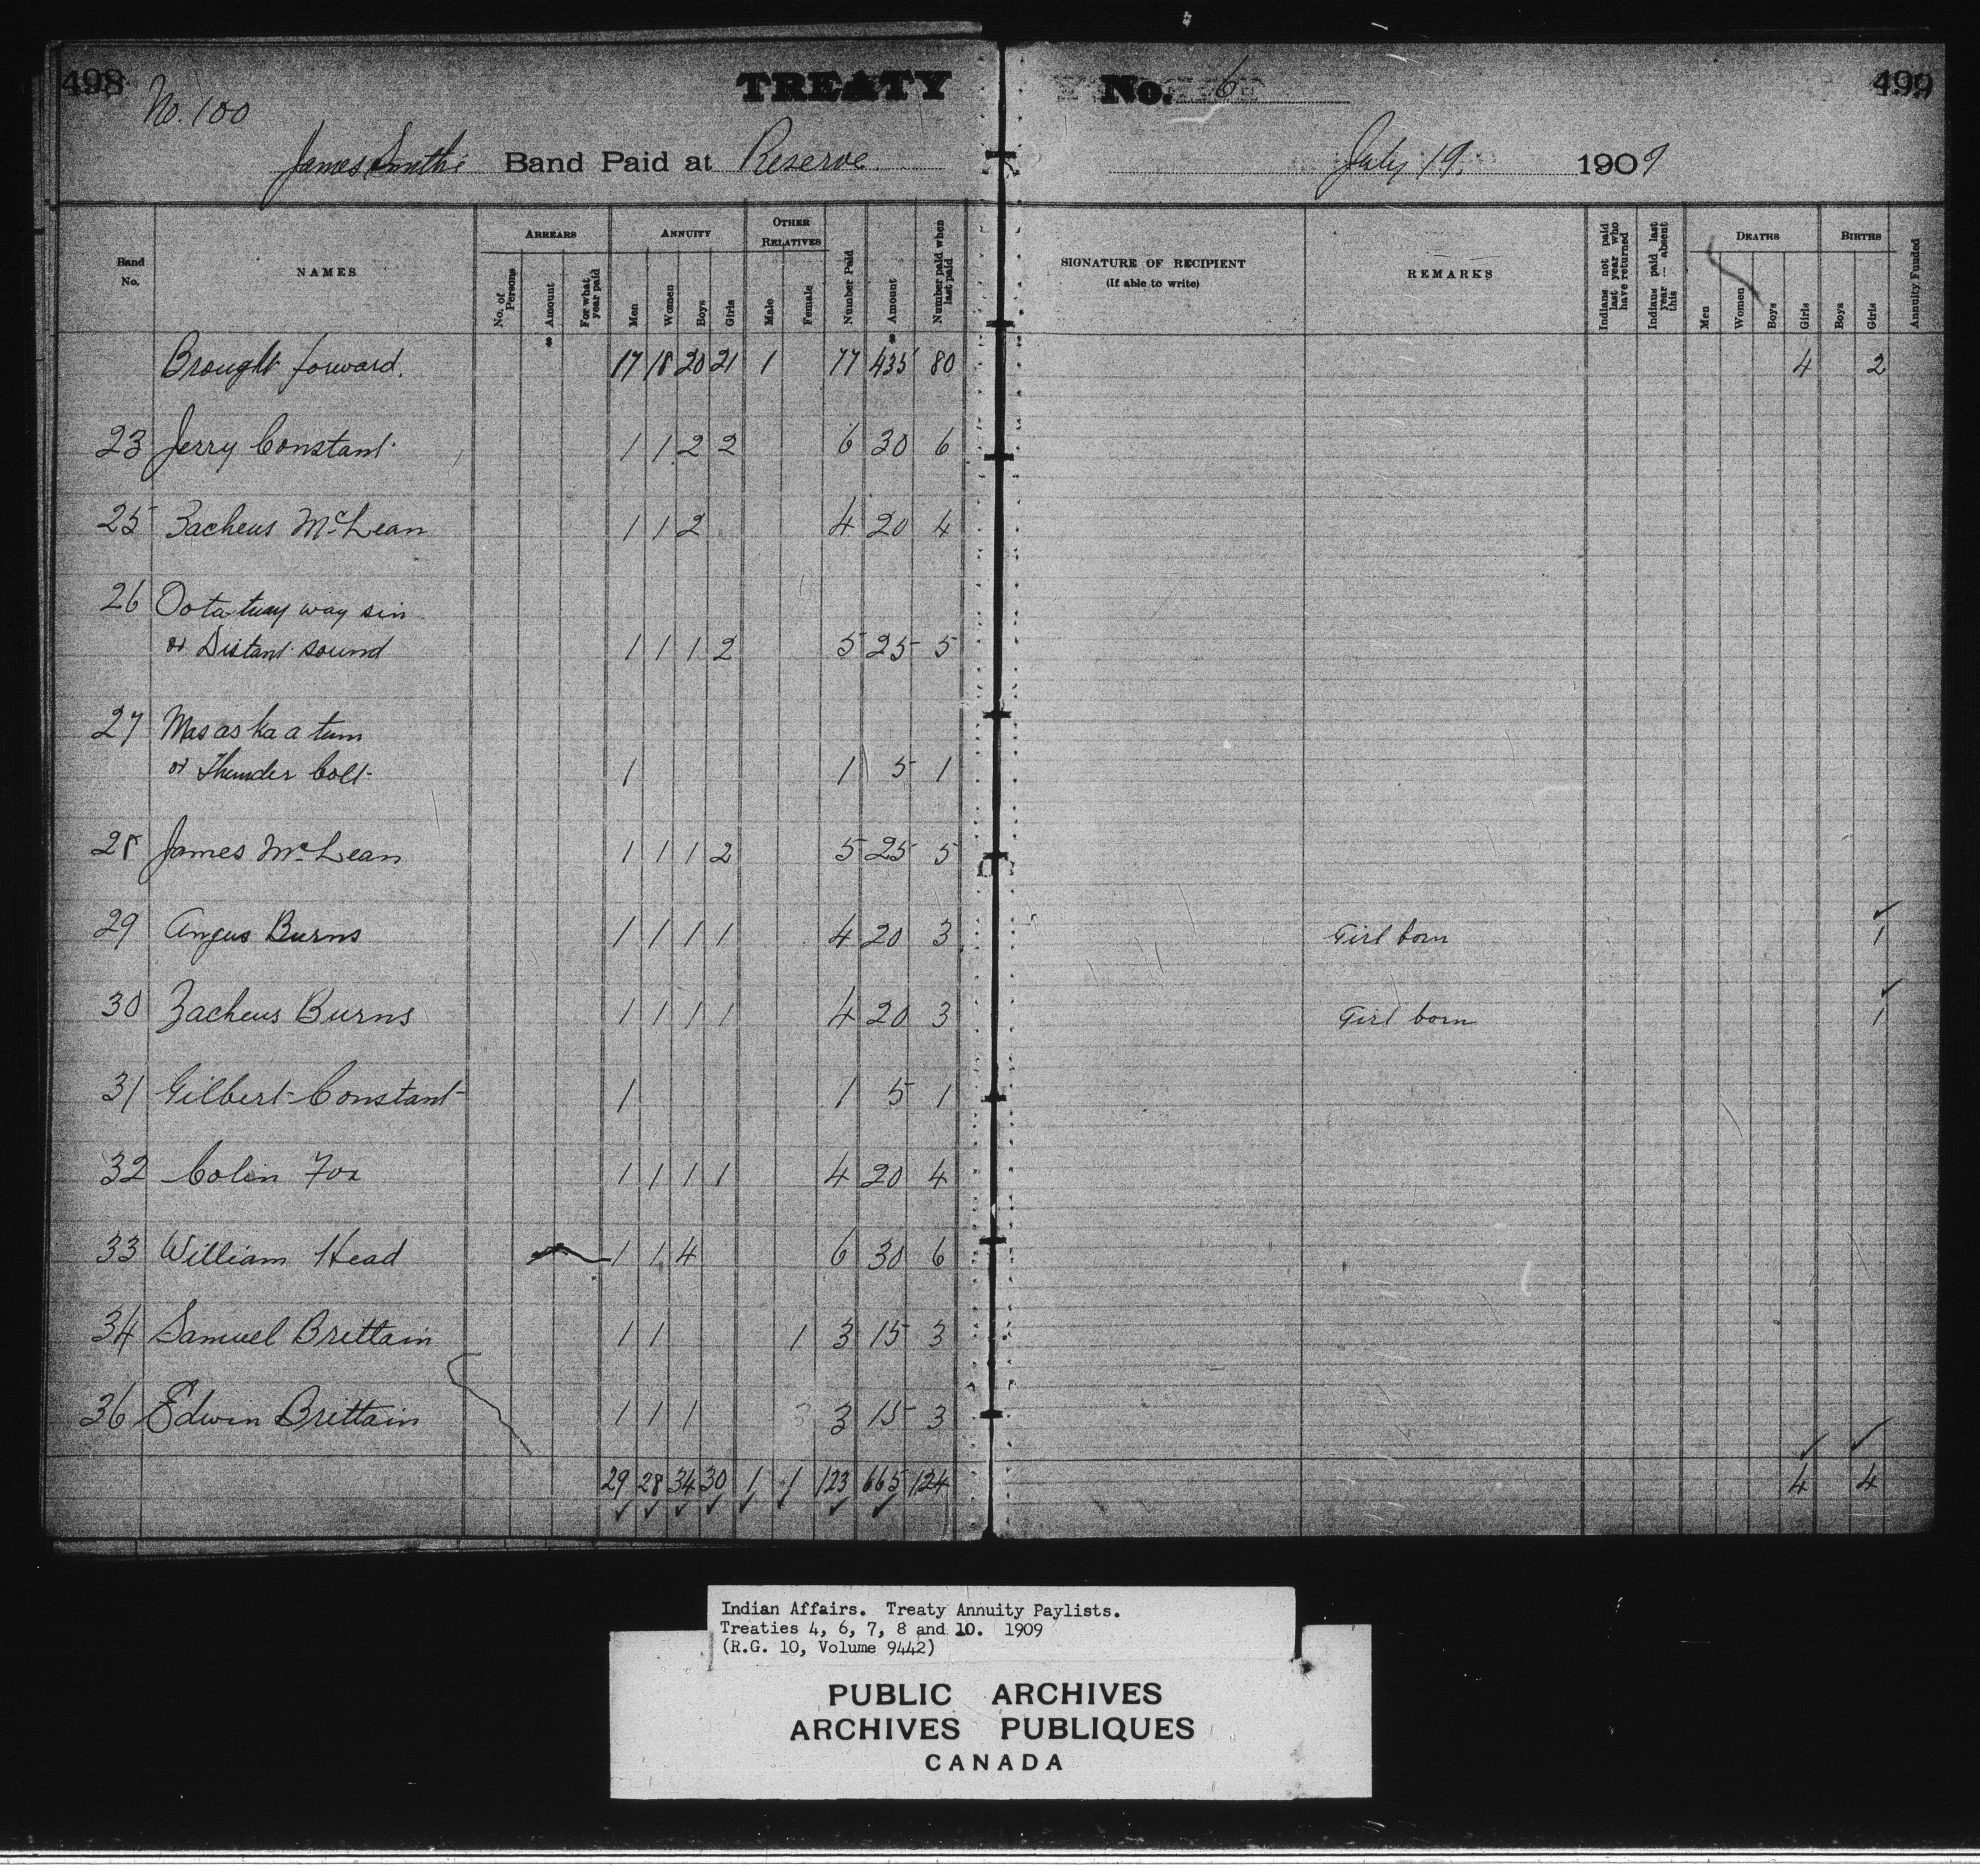 498 TREATY No. 6 499
No. 100
James Smith's Band Paid at Reserve July 19. 1909
Band No. NAMES ARREARS No. of Persons Amount For what year paid ANNUITY Men Women Boys Girls OTHER RELATIVES Male Female Number Paid Amount Number paid when last paid SIGNATURE OF RECIPIENT (If able to write) REMARKS Indians not paid last year who have returned Indians paid last year — absent this DEATHS Men Women Boys Girls BIRTHS Boys Girls Annuity Funded
$ $
Brought forward. 17 18 20 21 1 77 435 80 4 2
23 Jerry Constant 1 1 2 2 6 30 6
25 Zacheus McLean 1 1 2 4 20 4
26 Oota tway way sin
or Distant sound 1 1 1 2 5 25 5
27 Mas as ka a tum
or Thunder bolt 1 1 5 1
28 James McLean 1 1 1 2 5 25 5
29 Angus Burns 1 1 1 1 4 20 3 Girl born 1
30 Zacheus Burns 1 1 1 1 4 20 3 Girl born 1
31 Gilbert Constant 1 1 5 1
32 Colin Fox 1 1 1 1 4 20 4
33 William Head 1 1 4 6 30 6
34 Samuel Brittain 1 1 1 3 15 3
36 Edwin Brittain 1 1 1 3 3 15 3
29 28 34 30 1 1 123 665 124 4 4
Indian Affairs. Treaty Annuity Paylists.
Treaties 4, 6, 7, 8 and 10. 1909
(R.G. 10, Volume 9442)
PUBLIC ARCHIVES
ARCHIVES PUBLIQUES
CANADA